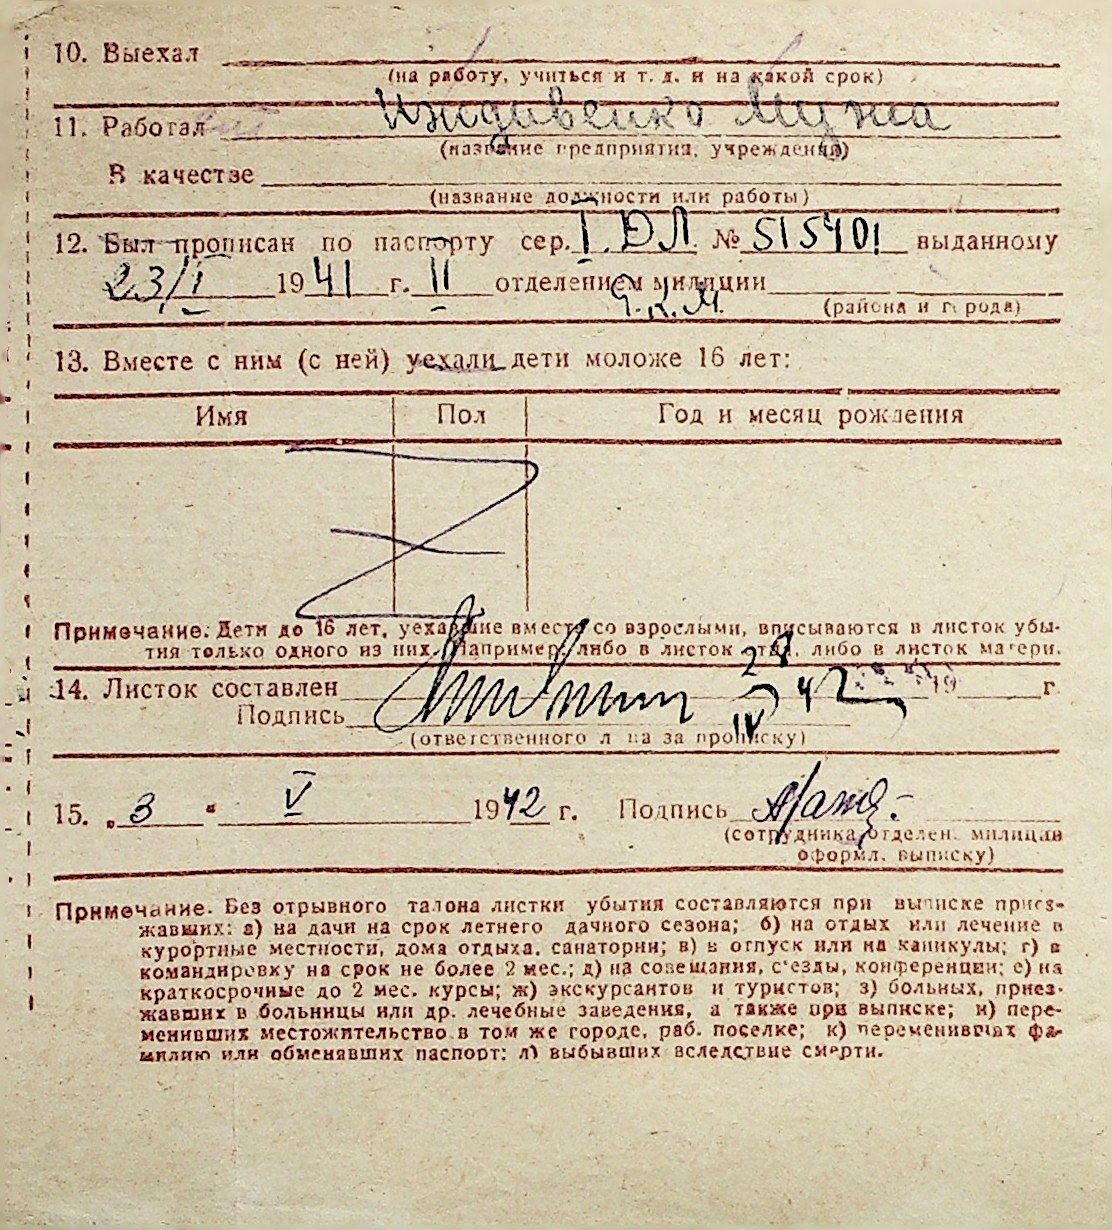 10. Выехал
(на работу, учиться и т. д. и на какой срок)
11. Работал Иждивенка мужа
(название предприятия, учреждения)
В качестве
(название должности или работы)
12. Был прописан по паспорту сер. I ДЛ № 515401 выданному
23/I 1941 г. II отделением милиции
Р.К.М.
(района и города)
13. Вместе с ним (с ней) уехали дети моложе 16 лет:
Имя Пол Год и месяц рождения
Примечание. Дети до 16 лет, уехавшие вместе со взрослыми, вписываются в листок убы-
тия только одного из них. Например, либо в листок отца, либо в листок матери.
14. Листок составлен 28 IV 42 19 г.
Подпись
(ответственного лица за прописку)
15. „ 3 “ V 1942 г. Подпись
(сотрудника отделен. милиции
оформл. выписку)
Примечание. Без отрывного талона листки убытия составляются при выписке приез-
жавших: а) на дачи на срок летнего дачного сезона; б) на отдых или лечение в
курортные местности, дома отдыха, санатории; в) в отпуск или на каникулы; г) в
командировку на срок не более 2 мес.; д) на совещания, с‘езды, конференции; е) на
краткосрочные до 2 мес. курсы; ж) экскурсантов и туристов; з) больных, приез-
жавших в больницы или др. лечебные заведения, а также при выписке; и) пере-
менивших местожительство в том же городе, раб. поселке; к) переменивших фа-
милию или обменявших паспорт; л) выбывших вследствие смерти.